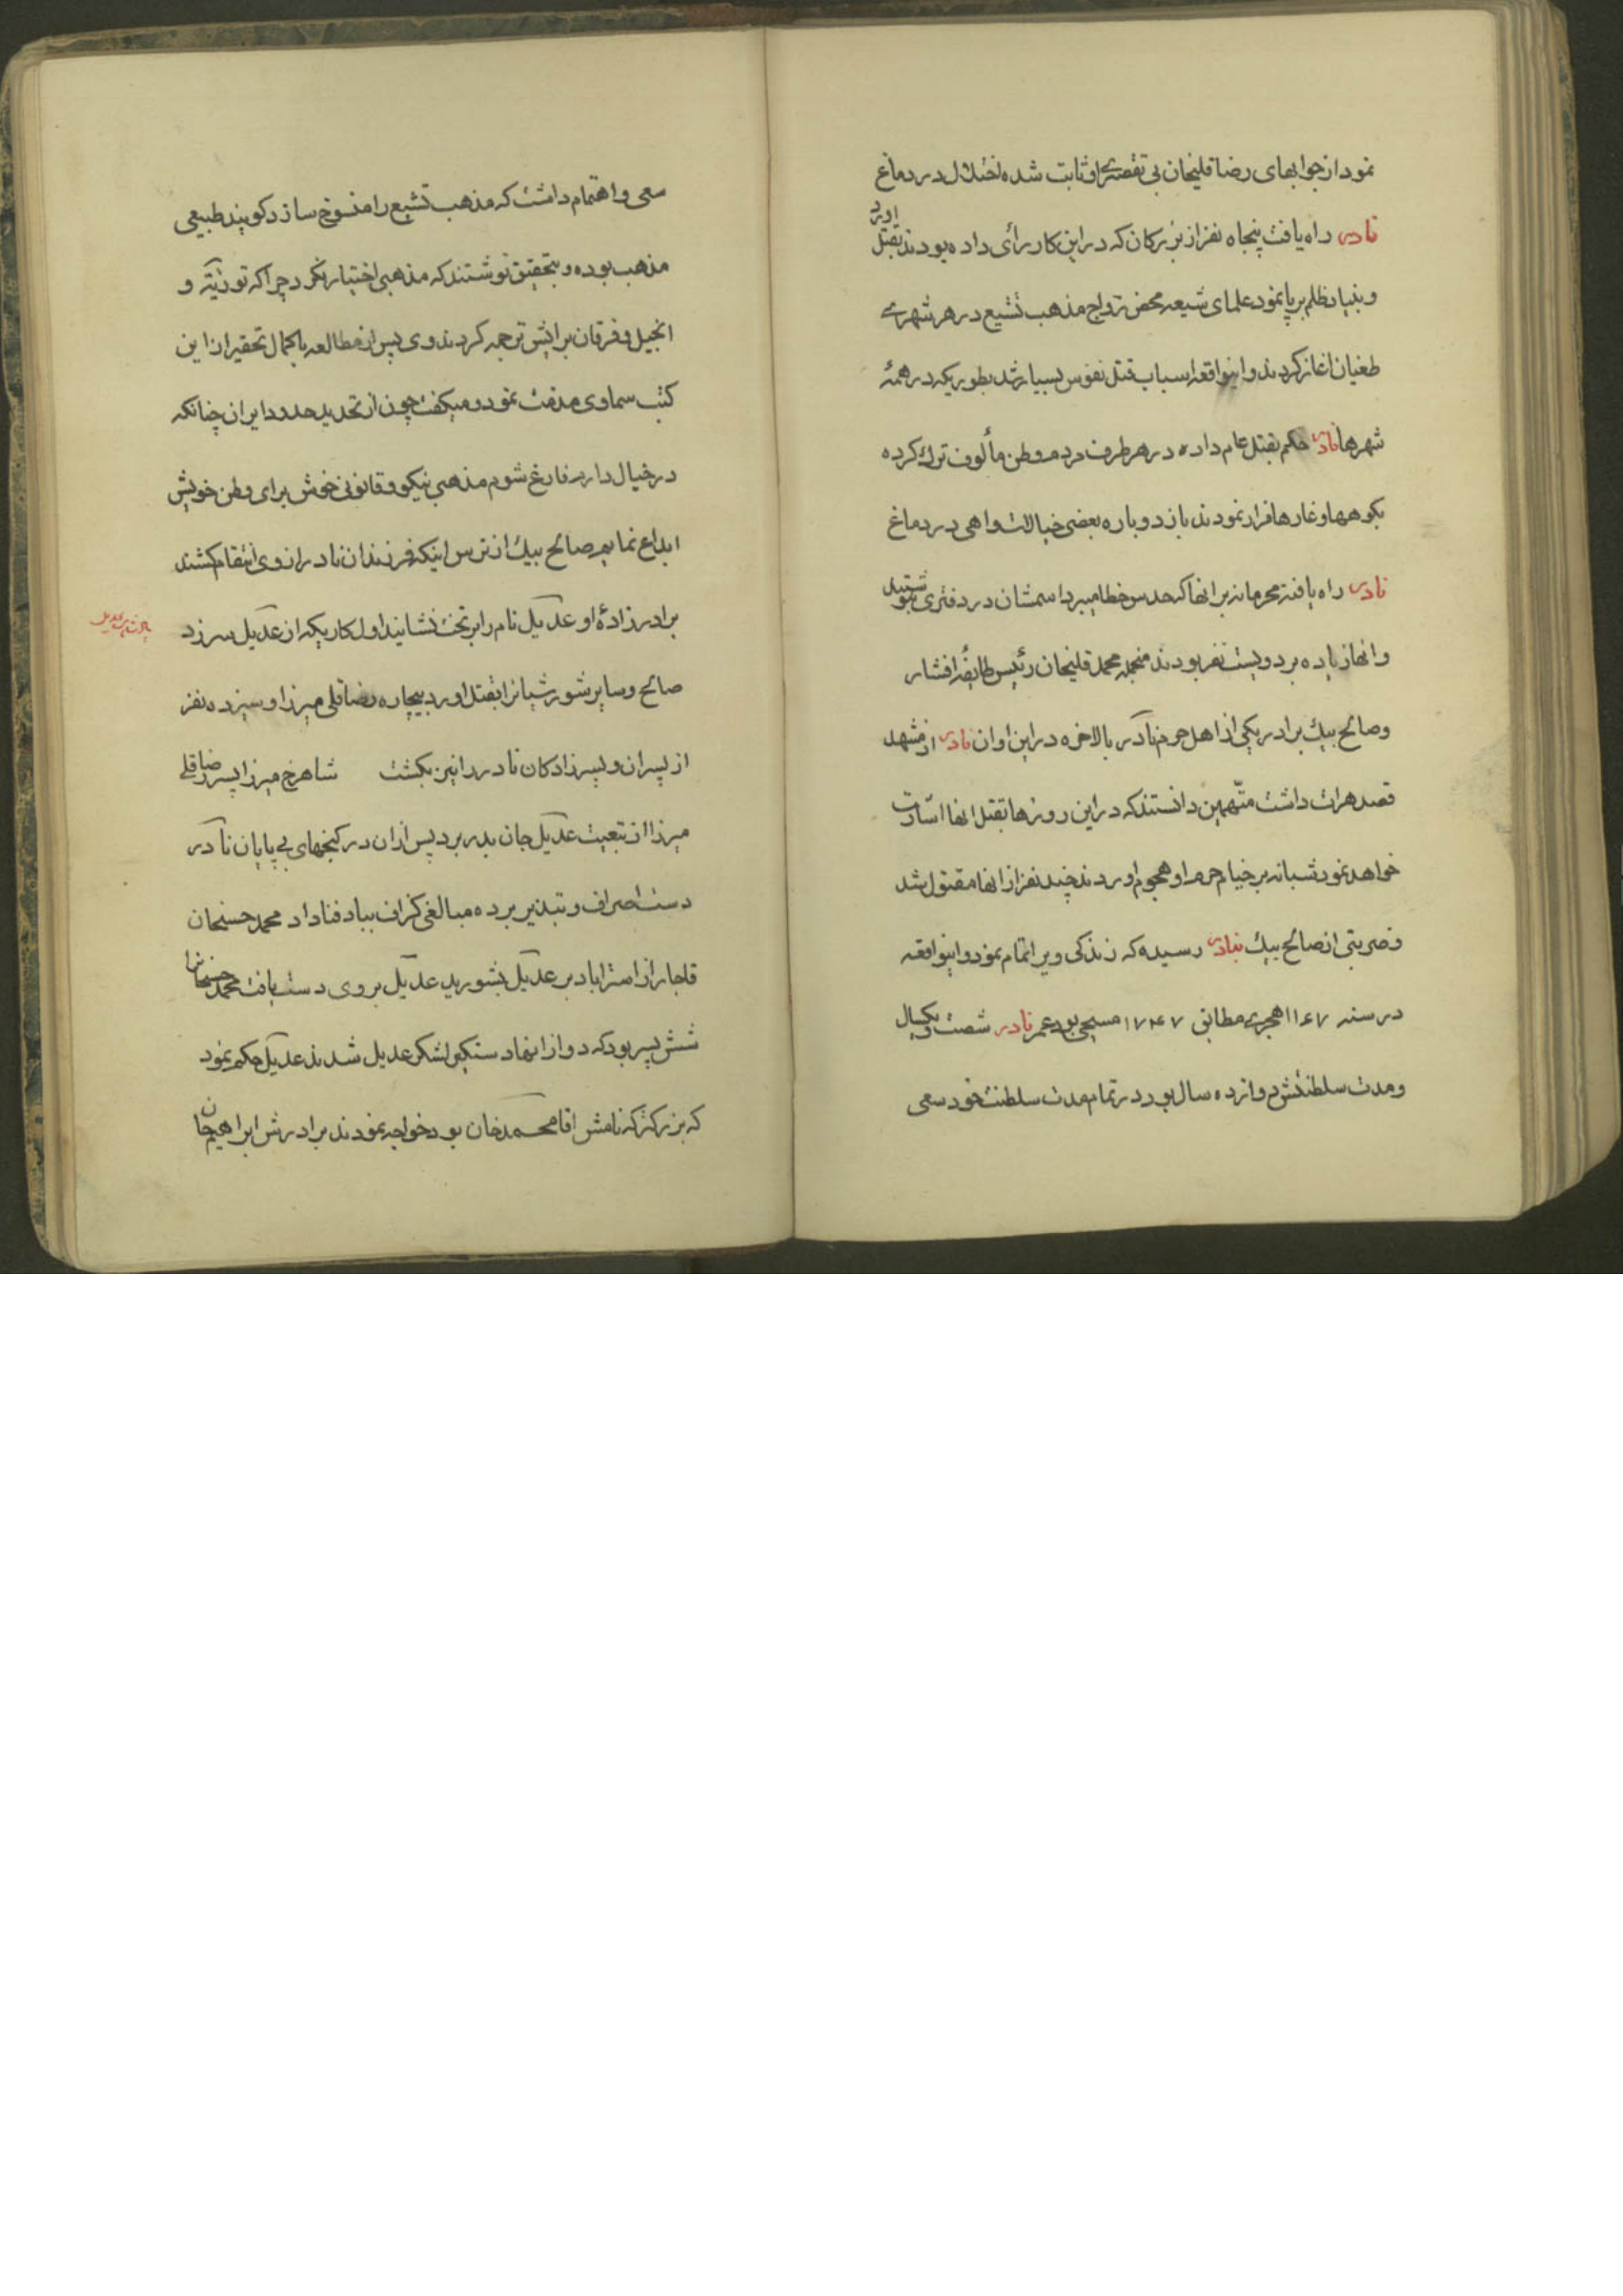 نمود از جوابهای رضاقلیخان بی تقصیری او ثابت شده اختلال در دماغ
نادر راه یافت پنجاه نفر از بزرکان که در این کار رأی داده بودند بقتل اورد
و بنیاد ظلم برپا نمود علمای شیعه محض رواج مذهب تشیع در هر شهری
طغیان اغاز کردند و اینواقعه اسباب قتل نفوس بسیار شد بطوریکه در همهٔ
شهرها نادر حکم بقتل عام داده در هر طرف مردم وطن مألوف ترک کرده
بکوهها و غارها فرار نمودند باز دوباره بعضی خیالات واهی در دماغ
نادر راه یافته محرمانه بر انها که حدس خطا میبرد اسمشان در دفتری
و انها زیاده بر دویست نفر بودند منجمله محمد قلیخان رئیس طایفهٔ افشار
و صالح بیک برادر یکی از اهل حرم نادر بالاخره در این اوان نادر از مشهد
قصد هرات داشت متهمین دانستند که در این روزها بقتل انها اشارت
خواهد نمود شبانه بر خیام حرم او هجوم اوردند چند نفر از انها مقتول شد
و ضربتی از صالح بیک بنادر رسیده که زندکی ویرا تمام نمود و اینواقعه
در سنه ۱۱۶۷ هجری مطابق ۱۷۴۷ مسیحی بود عمر نادر شصت و یکسال
و مدت سلطنتش دوازده سال بود در تمام مدت سلطنت خود سعی
سعی و اهتمام داشت که مذهب تشیع را منسوخ سازد کویند طبیعی
مذهب بوده و بتحقیق نوشتند که مذهبی اختیار نکرد چرا که توریته و
انجیل و فرقان برایش ترجمه کردند وی پس از مطالعه باکمال تحقیر از این
کتب سماوی مذمت نمود و میکفت چون از تحدید حدود ایران چنانکه
در خیال دارم فارغ شوم مذهبی نیکو و قانونی خوش برای وطن خویش
ابداع نمایم صالح بیک از ترس اینکه فرزندان نادر از وی انتقام کشند
برادرزادهٔ او عدیل نام را بر تخت نشانید اول کاریکه از عدیل سر زد
صالح و سایر شورشیانرا بقتل اورد بیچاره رضاقلی میرزا و سیزده نفر
از پسران و پسرزادکان نادر را نیز بکشت شاهرخ میرزا پسر رضاقلی
میرزا از تبعیت عدیل جان بدر برد پس از ان در کنجهای بی پایان نادر
دست اصراف و تبذیر برده مبالغی کزاف بباد فنا داد محمد حسنخان
قاجار از استراباد بر عدیل بشورید عدیل بر وی دست یافت محمد حسنخانرا
شش پسر بود که دو از انها دستکیر لشکر عدیل شدند عدیل حکم نمود
که بزرکتر که نامش اقا محمد خان بود خواجه نمودند برادرش ابراهیم خان